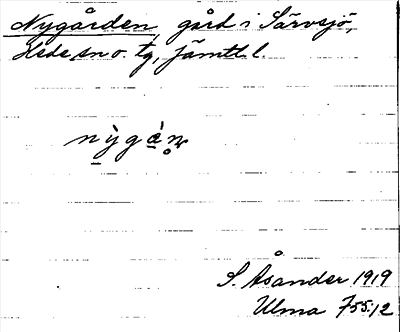 Nygården, gård i Särvsjö,
Hede sn o. tg, Jämtl. l.
nỳgàn̥
S. Åsander 1919
Ulma 755:12